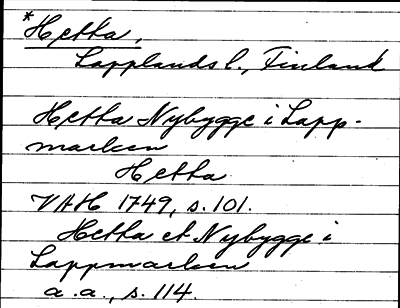 *Hetta,
Lapplands l., Finland
Hetta Nybygge i Lapp-
marken
Hetta
VAH 1749, s. 101.
Hetta et Nybygge i
Lappmarken
a. a., s. 114.